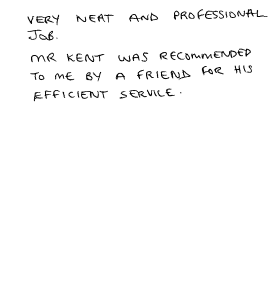 VERY NEAT AND PROFESSIONAL
JOB.
MR KENT WAS RECOMMENDED
TO ME BY A FRIEND FOR HIS
EFFICIENT SERVICE.